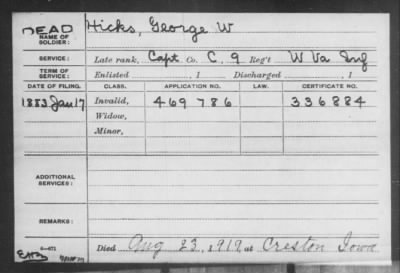 DEAD
NAME OF SOLDIER: Hicks, George W
SERVICE: Late rank, Capt Co. C, 9 Reg't W Va Inf
TERM OF SERVICE: Enlisted , 1 Discharged , 1
DATE OF FILING. CLASS. APPLICATION NO. LAW. CERTIFICATE NO.
1883 Jan 17 Invalid, 469 786 336884
Widow,
Minor,
ADDITIONAL SERVICES:
REMARKS:
Died Aug 23, 1919, at Creston Iowa